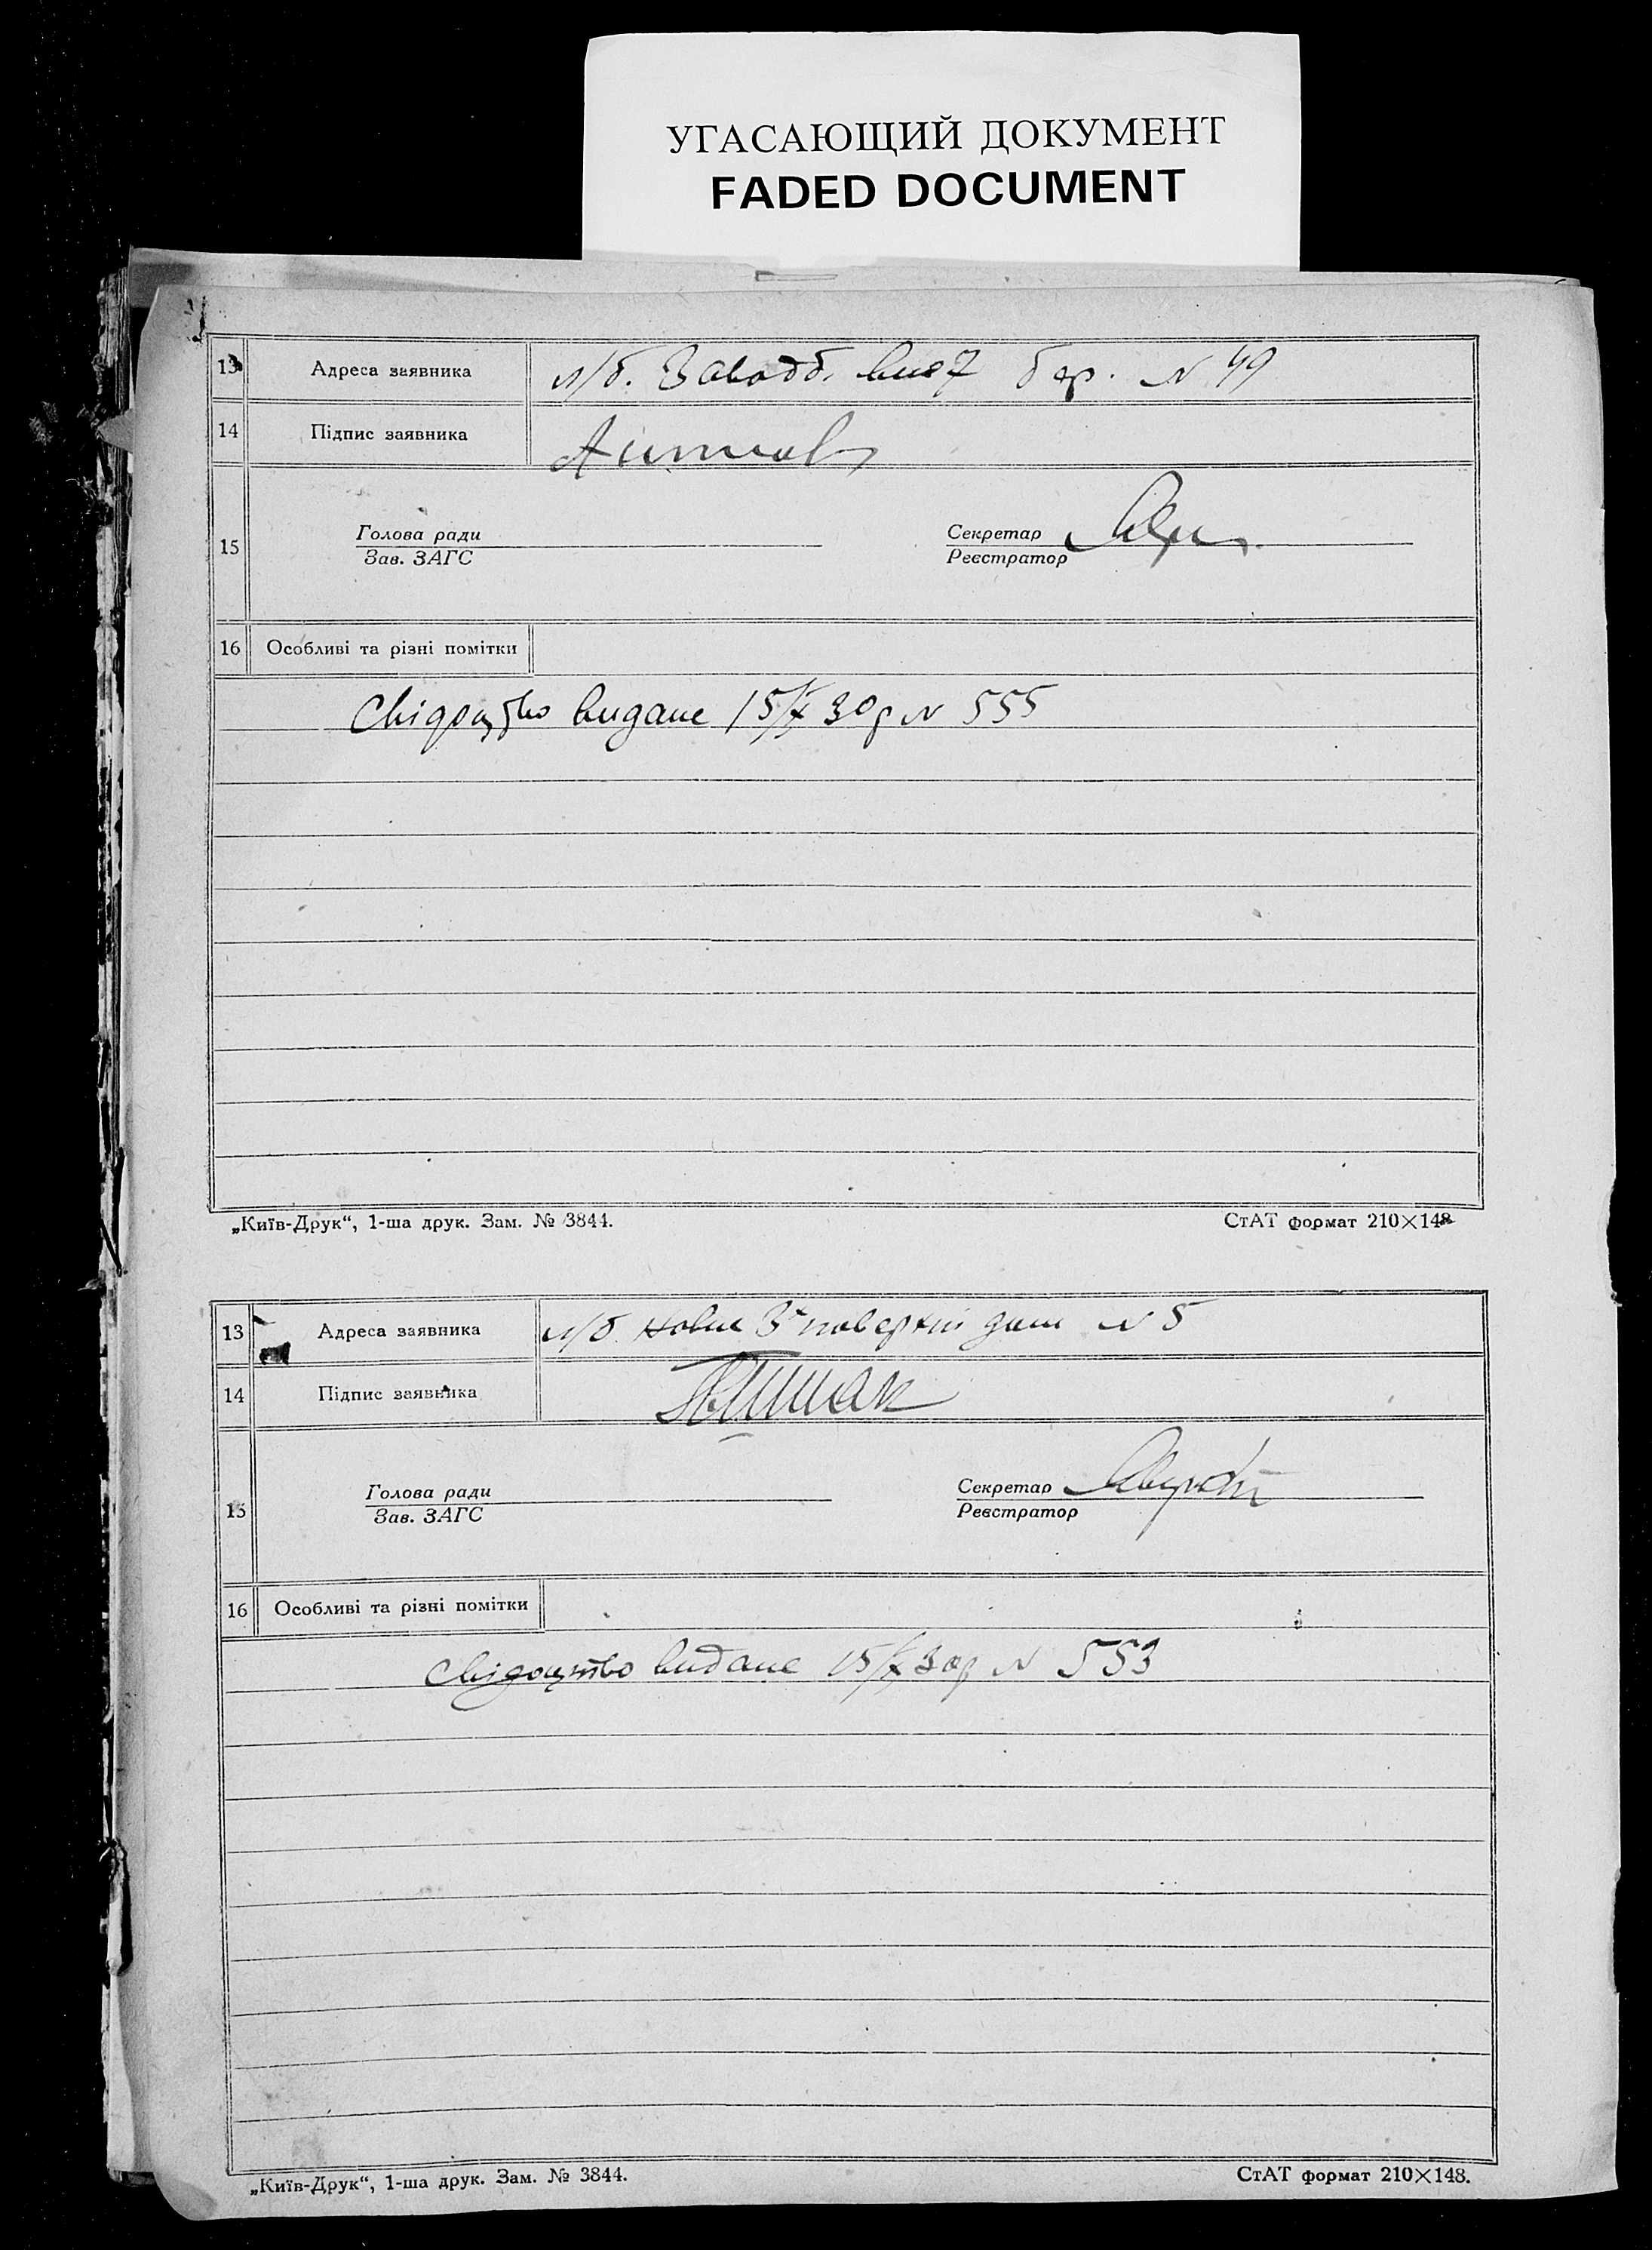 УГАСАЮЩИЙ ДОКУМЕНТ
FADED DOCUMENT
13 Адреса заявника л/б. Заводб. бар. N 49
14 Підпис заявника
15 Голова ради Секретар
Зав. ЗАГС Реєстратор
16 Особливі та різні помітки
Свідоцтво видане 15/X 30р N 555
„Київ-Друк“, 1-ша друк. Зам. № 3844. СтАТ формат 210×148
13 Адреса заявника л/б. нове 3х поверхні дом N 5
14 Підпис заявника
15 Голова ради Секретар
Зав. ЗАГС Реєстратор
16 Особливі та різні помітки
свідоцтво видане 15/X 30р N 553
„Київ-Друк“, 1-ша друк. Зам. № 3844. СтАТ формат 210×148.